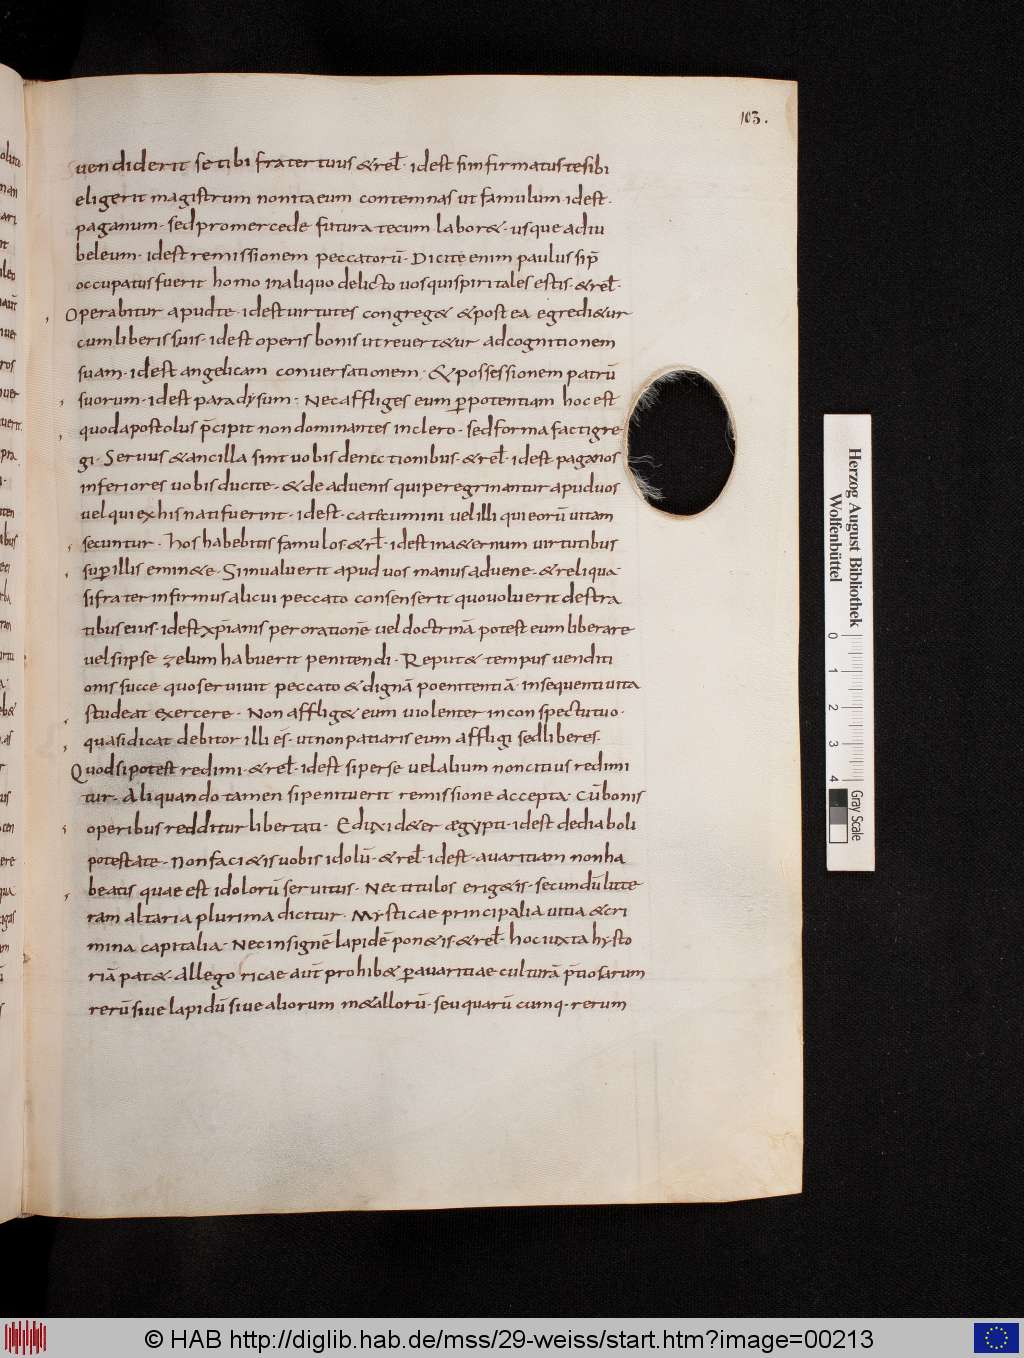 103.
vendiderit se tibi frater tuus & rel̄· idest sim firmatus te sibi
eligerit magistrum non ita eum contemnas ut famulum idest·
paganum· sed pro mercede futura tecum labor&· usque ad iu
beleum· idest remissionem peccatorū· Dicite enim paulus si p̄
occupatus fuerit homo in aliquo delicto uos qui spiritales estis· & rel̄·
Operabitur apud te· idest uirtutes congreg& & postea egredi&ur
cum liberis suis· idest operis bonis ut reuert&ur ad cognitionem
suam· idest angelicam conuersationem· & possessionem patrū
suorum· idest paradysum· Nec affliges eum ꝑ potentiam hoc est
quod apostolus p̄cipit non dominantes in clero· sed forma facti gre
gi· Seruus & ancilla sint uobis de nectionibus· & rel̄· idest paganos
inferiores uobis ducite· & de aduenis qui peregrinantur apud uos
uel qui ex his nati fuerint· idest· catecumini uel illi qui eorū uitam
secuntur· Hos habebitis famulos· & rl̄· idest in a&ernum uirtutibus
suꝑ illis emin&e· Si inualuerit apud uos manus aduene· & reliqua·
si frater infirmus alicui peccato consenserit quouoluerit de fra
tibus eius· idest xp̄ianis per orationē uel doctrinā potest eum liberare
uel si ipse zelum habuerit penitendi· Reput& tempus uenditi
onis succe quo seruiuit peccato & dignā poenitentiā· insequenti uita
studeat exercere· Non afflig& eum uiolenter in conspectu tuo·
quasi dicat debitor illi ēs· ut non patiaris eum affligi sed liberes·
Quod si potest redimi· & rel̄· idest si per se uel alium non citius redimi
tur· Aliquando tamen si penituerit remissione accepta· Cū bonis
operibus redditur libertati· Eduxid & er ægypti· idest de diaboli
potestate· Non faci&is uobis idolū· & rel̄· idest· auaritiam non ha
beatis quae est idolorū seruitus· Nec titulos erig&is· secundū litte
ram altaria plurima dicitur· Mysticae principalia uitia & cri
mina capitalia· Nec insignē lapidē pon&is· & rel̄· hoc iuxta hysto
riā pat&· Allegoricae aūt prohib& ꝑ auaritiae culturā p̄tiosarum
rerū siue lapidū siue aliorum m&allorū· seu quarū cumq· rerum
Herzog August Bibliothek
Wolfenbüttel
0 1 2 3 4
Gray Scale
© HAB http://diglib.hab.de/mss/29-weiss/start.htm?image=00213